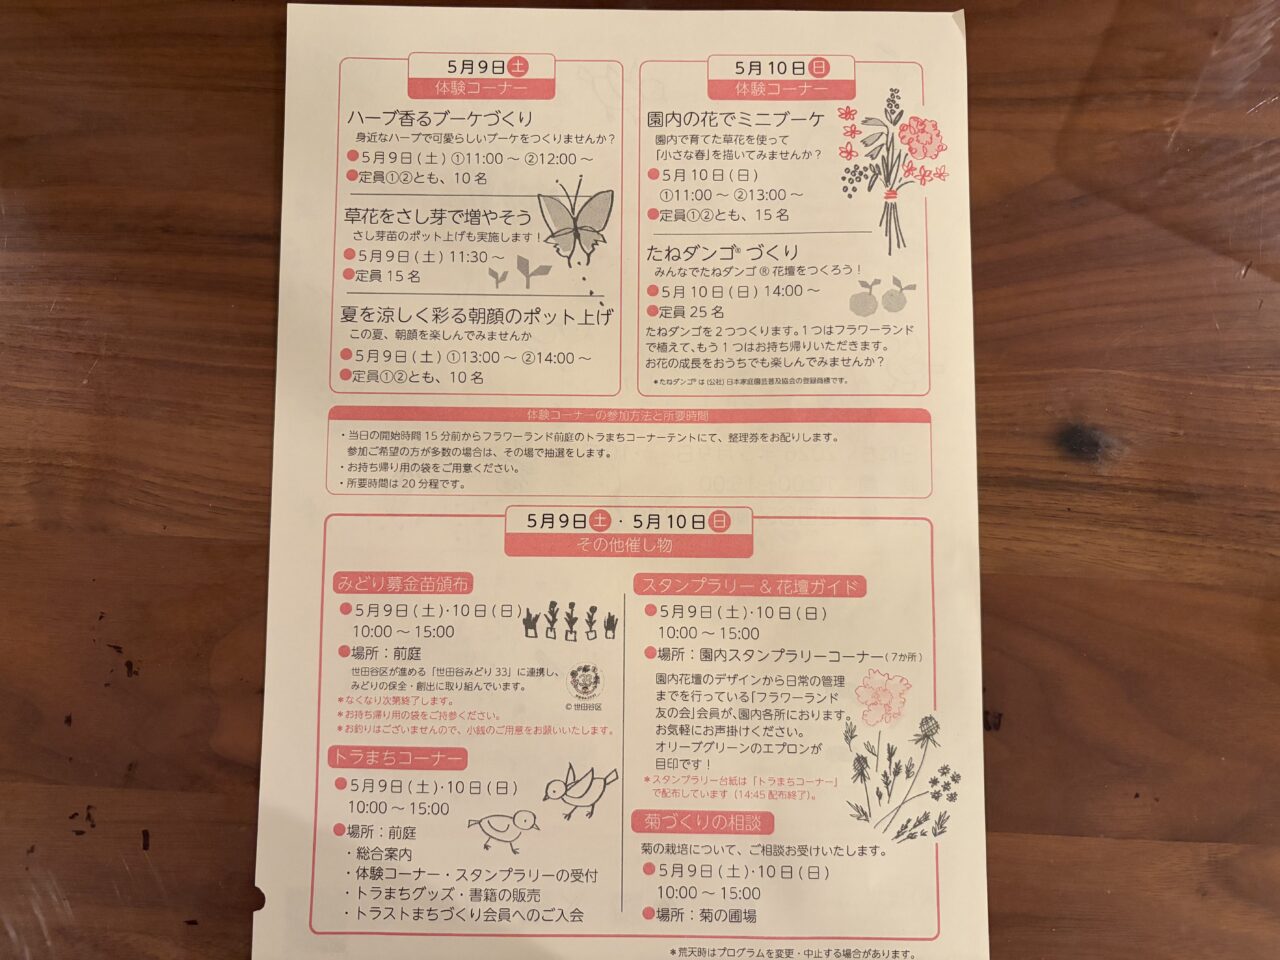 5月9日土
体験コーナー
ハーブ香るブーケづくり
身近なハーブで可愛らしいブーケをつくりませんか？
●5月9日(土) ①11:00～ ②12:00～
●定員①②とも、10名
草花をさし芽で増やそう
さし芽苗のポット上げも実施します！
●5月9日(土) 11:30～
●定員15名
夏を涼しく彩る朝顔のポット上げ
この夏、朝顔を楽しんでみませんか
●5月9日(土) ①13:00～ ②14:00～
●定員①②とも、10名
5月10日日
体験コーナー
園内の花でミニブーケ
園内で育てた草花を使って
「小さな春」を描いてみませんか？
●5月10日(日)
①11:00～ ②13:00～
●定員①②とも、15名
たねダンゴ®づくり
みんなでたねダンゴ®花壇をつくろう！
●5月10日(日) 14:00～
●定員25名
たねダンゴを2つつくります。1つはフラワーランド
で植えて、もう1つはお持ち帰りいただきます。
お花の成長をおうちでも楽しんでみませんか？
＊たねダンゴ®は(公社)日本家庭園芸普及協会の登録商標です。
体験コーナーの参加方法と所要時間
・当日の開始時間15分前からフラワーランド前庭のトラまちコーナーテントにて、整理券をお配りします。
参加ご希望の方が多数の場合は、その場で抽選をします。
・お持ち帰り用の袋をご用意ください。
・所要時間は20分程です。
5月9日土・5月10日日
その他催し物
みどり募金苗頒布
●5月9日(土)・10日(日)
10:00～15:00
●場所：前庭
世田谷区が進める「世田谷みどり33」に連携し、
みどりの保全・創出に取り組んでいます。
© 世田谷区
＊なくなり次第終了します。
＊お持ち帰り用の袋をご持参ください。
＊お釣りはございませんので、小銭のご用意をお願いいたします。
トラまちコーナー
●5月9日(土)・10日(日)
10:00～15:00
●場所：前庭
・総合案内
・体験コーナー・スタンプラリーの受付
・トラまちグッズ・書籍の販売
・トラストまちづくり会員へのご入会
スタンプラリー＆花壇ガイド
●5月9日(土)・10日(日)
10:00～15:00
●場所：園内スタンプラリーコーナー(7か所)
園内花壇のデザインから日常の管理
までを行っている「フラワーランド
友の会」会員が、園内各所におります。
お気軽にお声掛けください。
オリーブグリーンのエプロンが
目印です！
＊スタンプラリー台紙は「トラまちコーナー」
で配布しています（14:45配布終了）。
菊づくりの相談
菊の栽培について、ご相談お受けいたします。
●5月9日(土)・10日(日)
10:00～15:00
●場所：菊の圃場
＊荒天時はプログラムを変更・中止する場合があります。